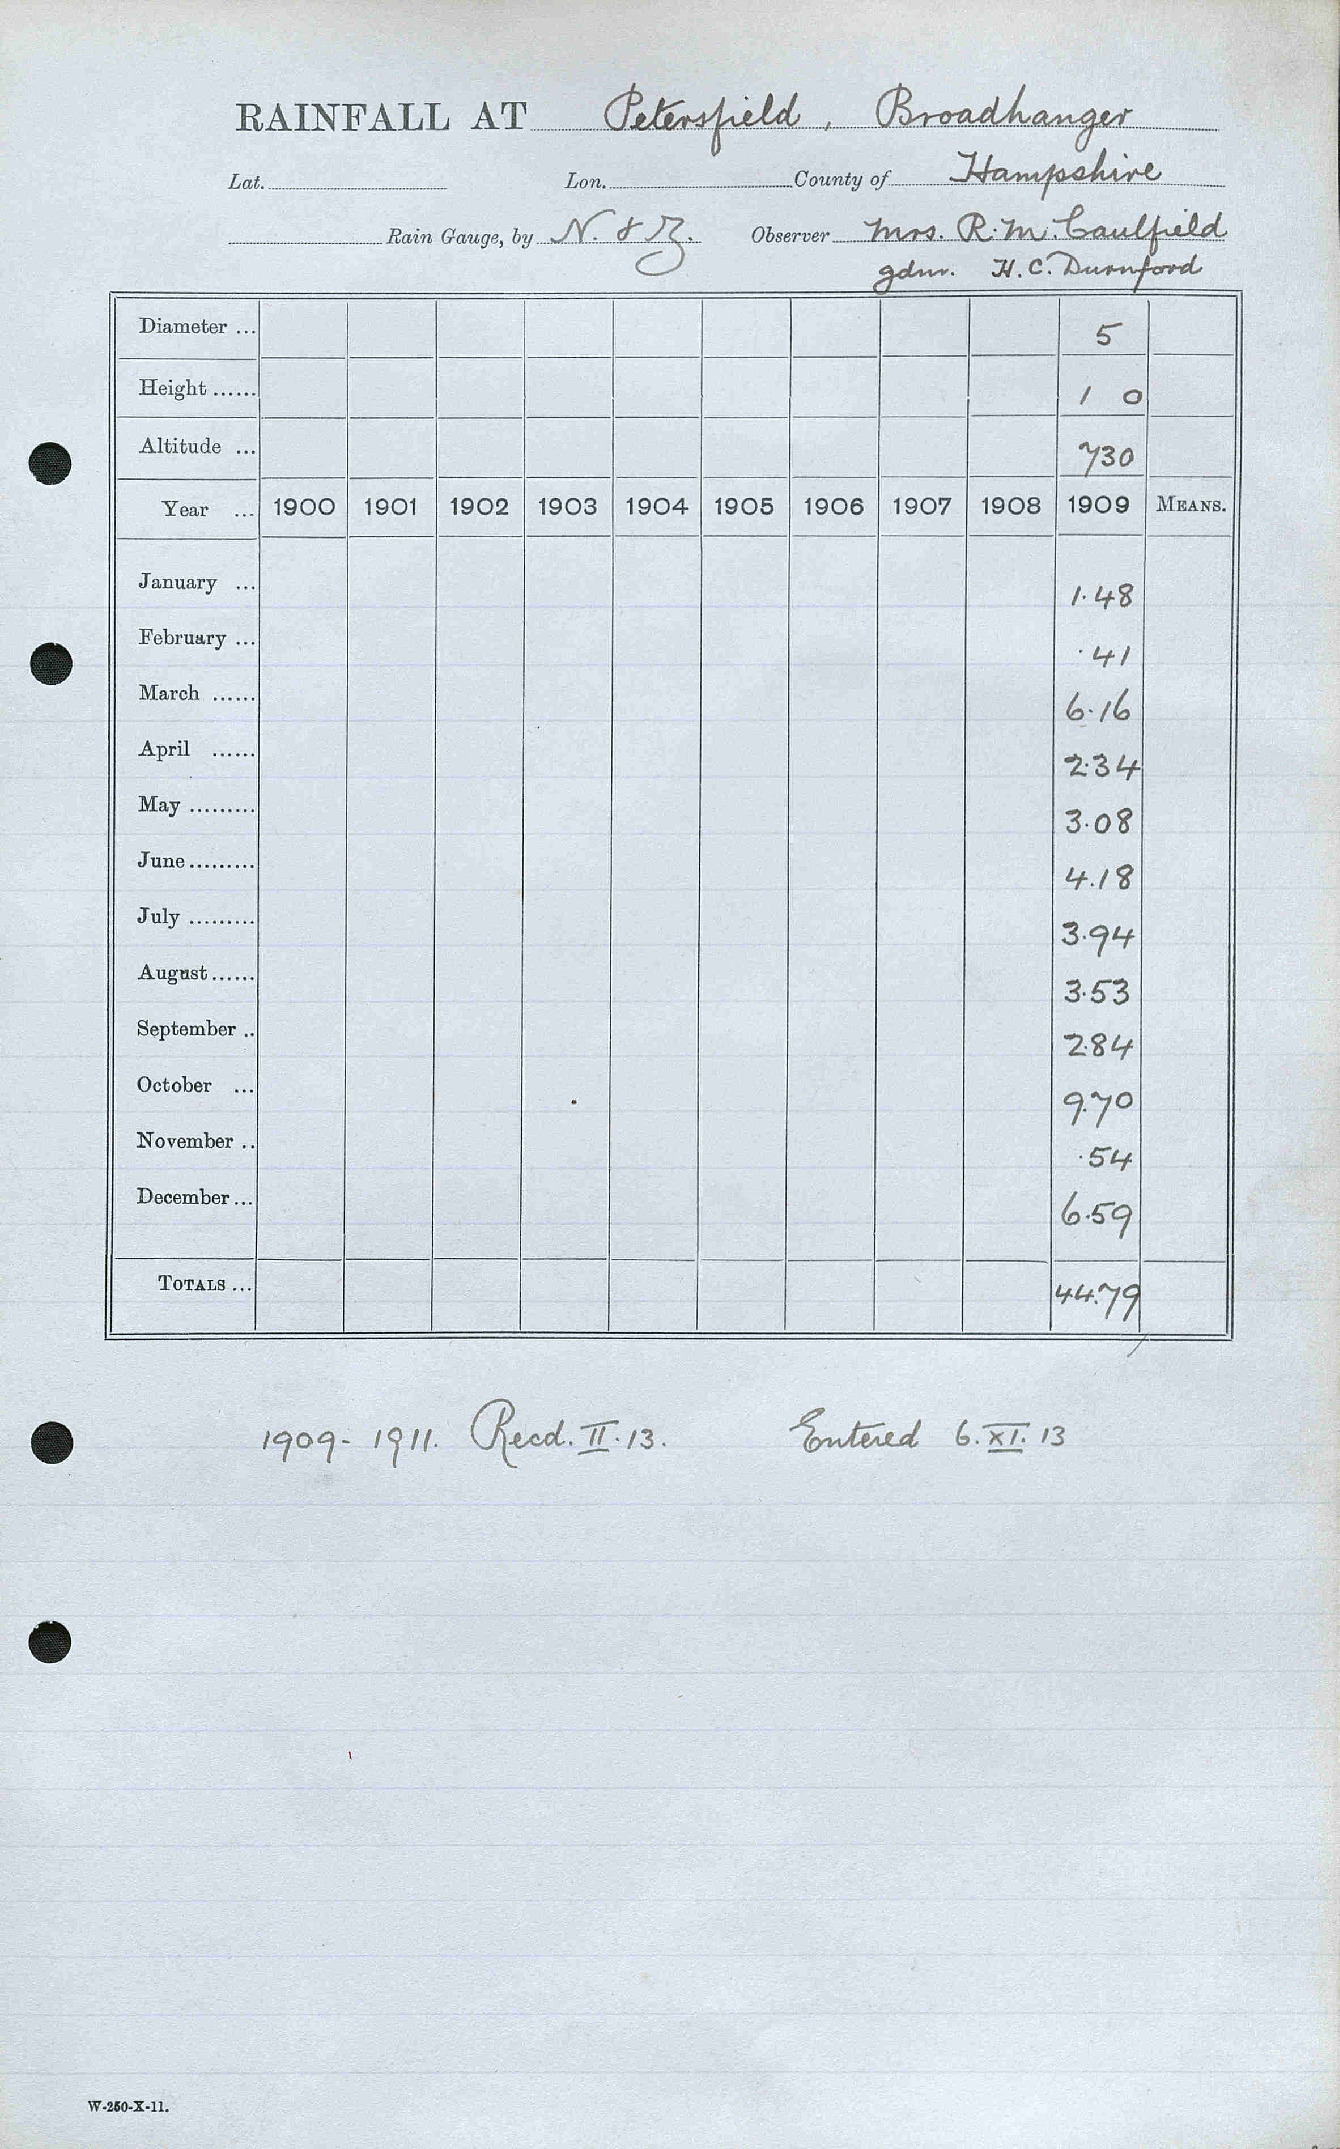 RAINFALL AT Petersfield, Broadhanger
Lat. Lon. County of Hampshire
Rain Gauge, by N. & Z. Observer Mrs. R. M. Caulfield
gdnr. H. C. Durnford
Diameter ... 5
Height ...... 1 0
Altitude ... 730
Year ... 1900 1901 1902 1903 1904 1905 1906 1907 1908 1909 MEANS.
January ... 1.48
February ... .41
March ...... 6.16
April ...... 2.34
May ......... 3.08
June ......... 4.18
July ......... 3.94
August ...... 3.53
September .. 2.84
October ... 9.70
November .. .54
December ... 6.59
TOTALS ... 44.79
1909 - 1911. Recd. II. 13. Entered 6. XI. 13
W-250-X-11.